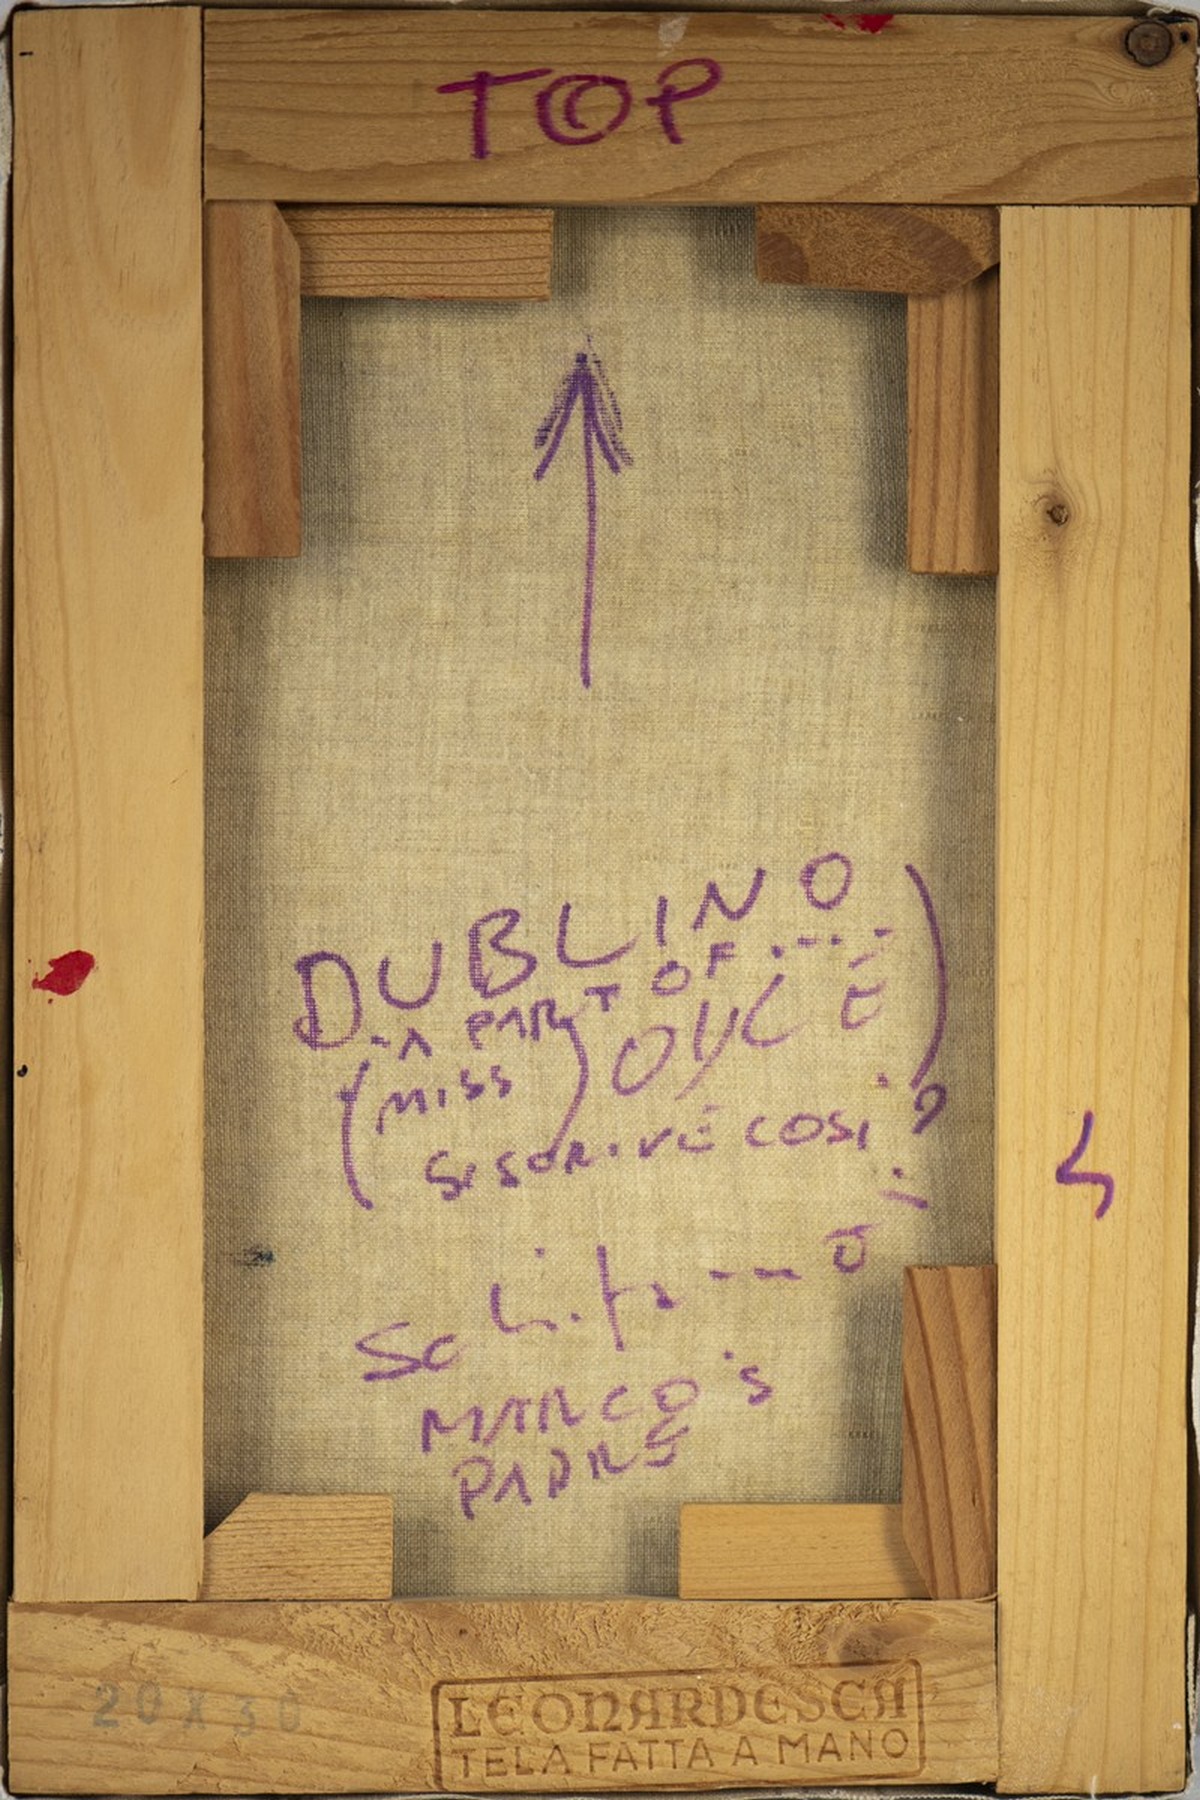 TOP
DUBLINO
A PART OF ....
(MISS) OYCE)
SI SCRIVE COSI ?
Solito --- o
MARCO'S
PADRE
20X30
LEONARDESCA
TELA FATTA A MANO